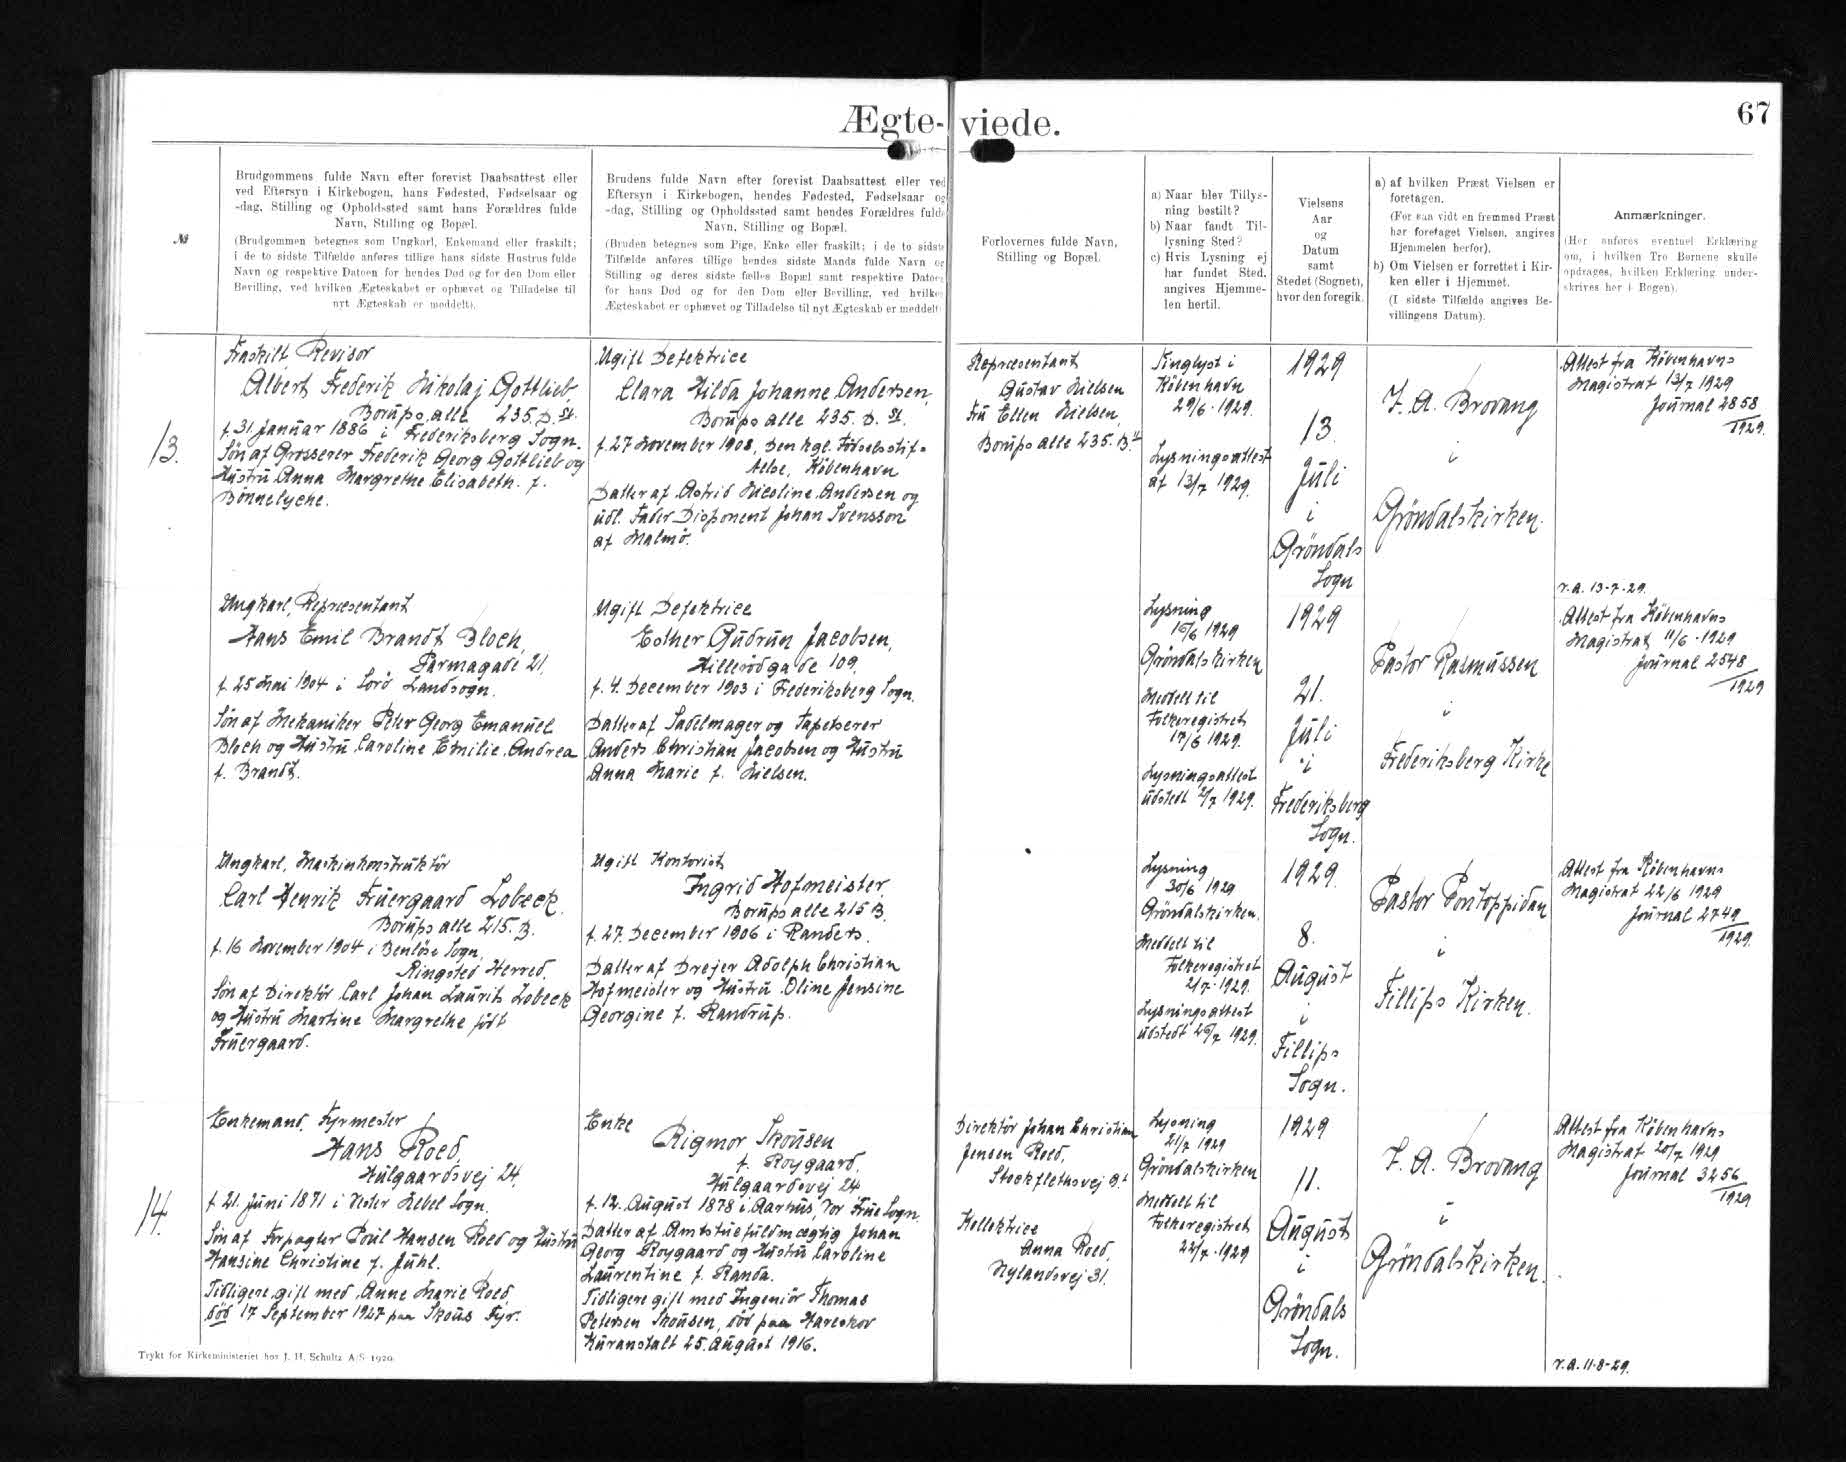 Ægte-viede.
67
№
Brudgommens fulde Navn efter forevist Daabsattest eller
ved Eftersyn i Kirkebogen, hans Fødested, Fødselsaar og
-dag, Stilling og Opholdssted samt hans Forældres fulde
Navn, Stilling og Bopæl.
(Brudgommen betegnes som Ungkarl, Enkemand eller fraskilt;
i de to sidste Tilfælde anføres tillige hans sidste Hustrus fulde
Navn og respektive Datoen for hendes Død og for den Dom eller
Bevilling, ved hvilken Ægteskabet er ophævet og Tilladelse til
nyt Ægteskab er meddelt).
Brudens fulde Navn efter forevist Daabsattest eller ved
Eftersyn i Kirkebogen, hendes Fødested, Fødselsaar og
-dag, Stilling og Opholdssted samt hendes Forældres fulde
Navn, Stilling og Bopæl.
(Bruden betegnes som Pige, Enke eller fraskilt; i de to sidste
Tilfælde anføres tillige hendes sidste Mands fulde Navn og
Stilling og deres sidste fælles Bopæl samt respektive Datoen
for hans Død og for den Dom eller Bevilling, ved hvilken
Ægteskabet er ophævet og Tilladelse til nyt Ægteskab er meddelt)
Forlovernes fulde Navn,
Stilling og Bopæl.
a) Naar blev Tillys-
ning bestilt?
b) Naar fandt Til-
lysning Sted?
c) Hvis Lysning ej
har fundet Sted,
angives Hjemme-
len hertil.
Vielsens
Aar
og
Datum
samt
Stedet (Sognet),
hvor den foregik.
a) af hvilken Præst Vielsen er
foretagen.
(For saa vidt en fremmed Præst
har foretaget Vielsen, angives
Hjemmelen herfor).
b) Om Vielsen er forrettet i Kir-
ken eller i Hjemmet.
(I sidste Tilfælde angives Be-
villingens Datum).
Anmærkninger.
(Her anføres eventuel Erklæring
om, i hvilken Tro Børnene skulle
opdrages, hvilken Erklæring under-
skrives her i Bogen).
13.
Fraskilt Revisor
Albert Frederik Nikolaj Gottlieb,
Borups alle 235. D. st.
f. 31 Januar 1886 i Frederiksberg Sogn.
Søn af Grosserer Frederik Georg Gottlieb og
Hustru Anna Margrethe Elisabeth. f.
Bonnelyche.
Ugift Defektrice
Clara Hilda Johanne Andersen,
Borups alle 235. D. st.
f. 27 November 1908, Den kgl. Fødselsstif-
telse, København
Datter af Astrid Nicoline Andersen og
udl. Fader Disponent Johan Svensson
af Malmø.
Repræsentant
Gustav Nielsen
Fru Ellen Nielsen,
Borups alle 235. B.
Tinglyst i
København
29/6. 1929.
Lysningsattest
af 13/7 1929.
1929
13.
Juli
i
Gröndals
Sogn
F. A. Brovang
i
Gröndalskirken.
Attest fra Københavns
Magistrat 13/7 1929
Journal 2858/1929.
v. a. 13-7-29.
Ungkarl, Repræsentant
Hans Emil Brandt Bloch,
Parmagade 21.
f. 25 Mai 1904 i Sorø Landsogn.
Søn af Mekaniker Peter Georg Emanuel
Bloch og Hustru Caroline Emilie Andrea
f. Brandt.
Ugift Defektrice
Esther Gudrun Jacobsen,
Hillerödgade 109.
f. 4. December 1903 i Frederiksberg Sogn.
Datter af Sadelmager og Tapetserer
Anders Christian Jacobsen og Hustru
Anna Marie f. Nielsen.
Lysning
16/6 1929
Gröndalskirken
Meddelt til
Folkeregistret
17/6 1929.
Lysningsattest
udstedt 2/7 1929.
1929
21.
Juli
i
Frederiksberg
Sogn.
Pastor Rasmussen
i
Frederiksberg Kirke
Attest fra Københavns
Magistrat 11/6. 1929
Journal 2548/1929
Ungkarl, Maskinkonstruktör
Carl Henrik Fruergaard Lobeck.
Borups alle 215. B.
f. 16 November 1904 i Benløse Sogn,
Ringsted Herred.
Søn af Direktör Carl Johan Laurits Lobeck
og Hustru Martine Margrethe født
Fruergaard.
Ugift Kontorist
Ingrid Hofmeister
Borups alle 215 B.
f. 27. December 1906 i Randers.
Datter af Drejer Adolph Christian
Hofmeister og Hustru Oline Jensine
Georgine f. Randrup.
Lysning
30/6 1929
Gröndalskirken.
Meddelt til
Folkeregistret
2/7. 1929.
Lysningsattest
udstedt 26/7 1929.
1929.
8.
August
i
Fillips
Sogn.
Pastor Pontoppidan
i
Fillips Kirken.
Attest fra Københavns
Magistrat 22/6 1929
Journal 2749/1929.
14.
Enkemand. Fyrmester
Hans Roed,
Hulgaardsvej 24.
f. 21. Juni 1871 i Vester Nebel Sogn.
Søn af Forpagter Poul Hansen Roed og Hustru
Hansine Christine f. Juhl.
Tidligere gift med Anne Marie Roed
død 17 September 1927 paa Skovs Fyr.
Enke
Rigmor Skousen
f. Roygaard.
Hulgaardsvej 24
f. 12. August 1878 i Aarhus, Vor Frue Sogn.
Datter af Amtstuefuldmægtig Johan
Georg Roygaard og Hustru Caroline
Laurentine f. Randa.
Tidligere gift med Ingeniör Thomas
Petersen Skousen, død paa Hareskov
Kuranstalt 25. August 1916.
Direktör Johan Christian
Jensen Roed,
Stockflethsvej 9.
Kollektrice
Anna Roed,
Nylandsvej 31.
Lysning
21/7 1929
Gröndalskirken
Meddelt til
Folkeregistret
22/7. 1929
1929
11.
August
i
Gröndals
Sogn.
F. A. Brovang
i
Gröndalskirken.
Attest fra Københavns
Magistrat 20/7 1929
Journal 3256/1929
v. a. 11-8-29.
Trykt for Kirkeministeriet hos J. H. Schultz A/S 1920.